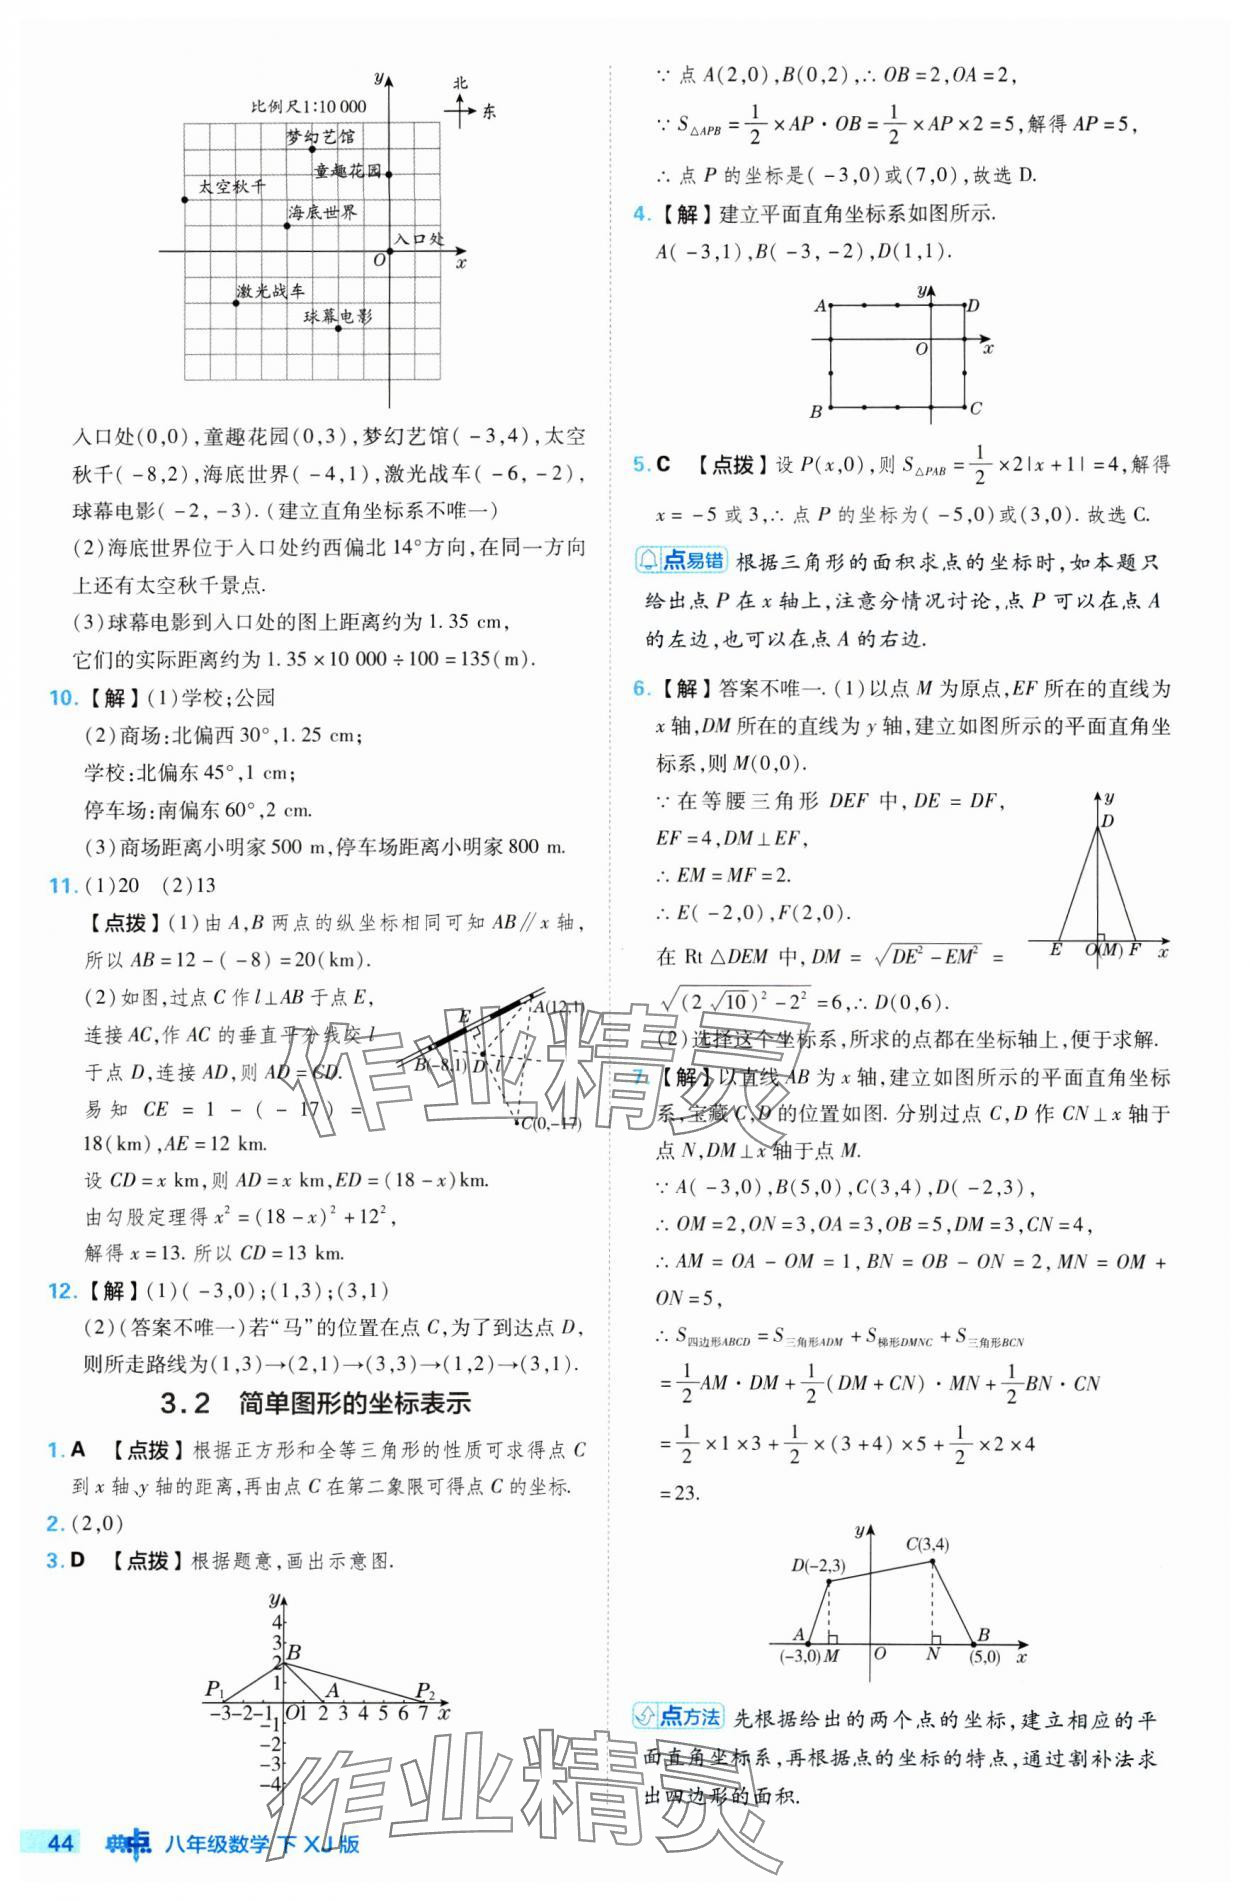 y
北
东
比例尺1:10 000
梦幻艺馆
童趣花园
太空秋千
海底世界
入口处
O
x
激光战车
球幕电影
入口处(0,0),童趣花园(0,3),梦幻艺馆(-3,4),太空
秋千(-8,2),海底世界(-4,1),激光战车(-6,-2),
球幕电影(-2,-3).(建立直角坐标系不唯一)
(2)海底世界位于入口处约西偏北14°方向,在同一方向
上还有太空秋千景点.
(3)球幕电影到入口处的图上距离约为1.35 cm,
它们的实际距离约为1.35×10 000÷100=135(m).
10.【解】(1)学校;公园
(2)商场:北偏西30°,1.25 cm;
学校:北偏东45°,1 cm;
停车场:南偏东60°,2 cm.
(3)商场距离小明家500 m,停车场距离小明家800 m.
11.(1)20 (2)13
【点拨】(1)由A,B两点的纵坐标相同可知AB∥x轴,
所以AB=12-(-8)=20(km).
(2)如图,过点C作l⊥AB于点E,
连接AC,作AC的垂直平分线交l
于点D,连接AD,则AD=CD.
易知CE=1-(-17)=
18(km),AE=12 km.
E
A(12,1)
B(-8,1)
D
l
C(0,-17)
设CD=x km,则AD=x km,ED=(18-x)km.
由勾股定理得x²=(18-x)²+12²,
解得x=13.所以CD=13 km.
12.【解】(1)(-3,0);(1,3);(3,1)
(2)(答案不唯一)若“马”的位置在点C,为了到达点D,
则所走路线为(1,3)→(2,1)→(3,3)→(1,2)→(3,1).
3.2 简单图形的坐标表示
1.A 【点拨】根据正方形和全等三角形的性质可求得点C
到x轴、y轴的距离,再由点C在第二象限可得点C的坐标.
2.(2,0)
3.D 【点拨】根据题意,画出示意图.
y
4
3
2
1
B
P₁
A
P₂
-3-2-1 O 1 2 3 4 5 6 7 x
-1
-2
-3
-4
∵点A(2,0),B(0,2),∴OB=2,OA=2,
∵S△APB=1/2×AP·OB=1/2×AP×2=5,解得AP=5,
∴点P的坐标是(-3,0)或(7,0),故选D.
4.【解】建立平面直角坐标系如图所示.
A(-3,1),B(-3,-2),D(1,1).
A
y
D
O
x
B
C
5.C 【点拨】设P(x,0),则S△PAB=1/2×2|x+1|=4,解得
x=-5或3,∴点P的坐标为(-5,0)或(3,0).故选C.
点易错 根据三角形的面积求点的坐标时,如本题只
给出点P在x轴上,注意分情况讨论,点P可以在点A
的左边,也可以在点A的右边.
6.【解】答案不唯一.(1)以点M为原点,EF所在的直线为
x轴,DM所在的直线为y轴,建立如图所示的平面直角坐
标系,则M(0,0).
∵在等腰三角形DEF中,DE=DF,
EF=4,DM⊥EF,
∴EM=MF=2.
∴E(-2,0),F(2,0).
在Rt△DEM中,DM=√(DE²-EM²)=
√((2√10)²-2²)=6,∴D(0,6).
y
D
E
O(M)
F
x
(2)选择这个坐标系,所求的点都在坐标轴上,便于求解.
7.【解】以直线AB为x轴,建立如图所示的平面直角坐标
系,宝藏C,D的位置如图.分别过点C,D作CN⊥x轴于
点N,DM⊥x轴于点M.
∵A(-3,0),B(5,0),C(3,4),D(-2,3),
∴OM=2,ON=3,OA=3,OB=5,DM=3,CN=4,
∴AM=OA-OM=1,BN=OB-ON=2,MN=OM+
ON=5,
∴S四边形ABCD=S三角形ADM+S梯形DMNC+S三角形BCN
=1/2AM·DM+1/2(DM+CN)·MN+1/2BN·CN
=1/2×1×3+1/2×(3+4)×5+1/2×2×4
=23.
y
C(3,4)
D(-2,3)
A
(-3,0)
M
O
N
B
(5,0)
x
点方法 先根据给出的两个点的坐标,建立相应的平
面直角坐标系,再根据点的坐标的特点,通过割补法求
出四边形的面积.
作业精灵
作业精灵
44 典点 八年级数学 下 XJ版